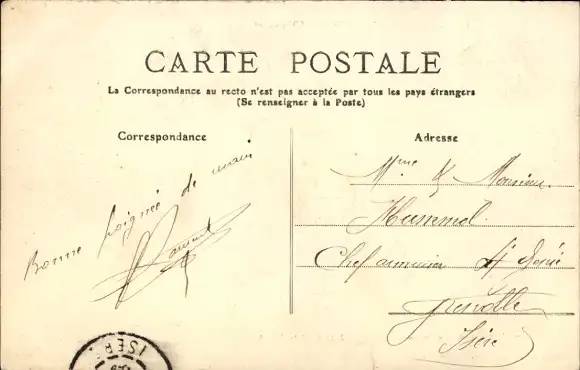 CARTE POSTALE
La Correspondance au recto n'est pas acceptée par tous les pays étrangers
(Se renseigner à la Poste)
Correspondance
Bonne poignée de main
Adresse
Mme & Monsieur
Hummel
Chef armurier 4e Génie
Grenoble
Isère
ISÈRE